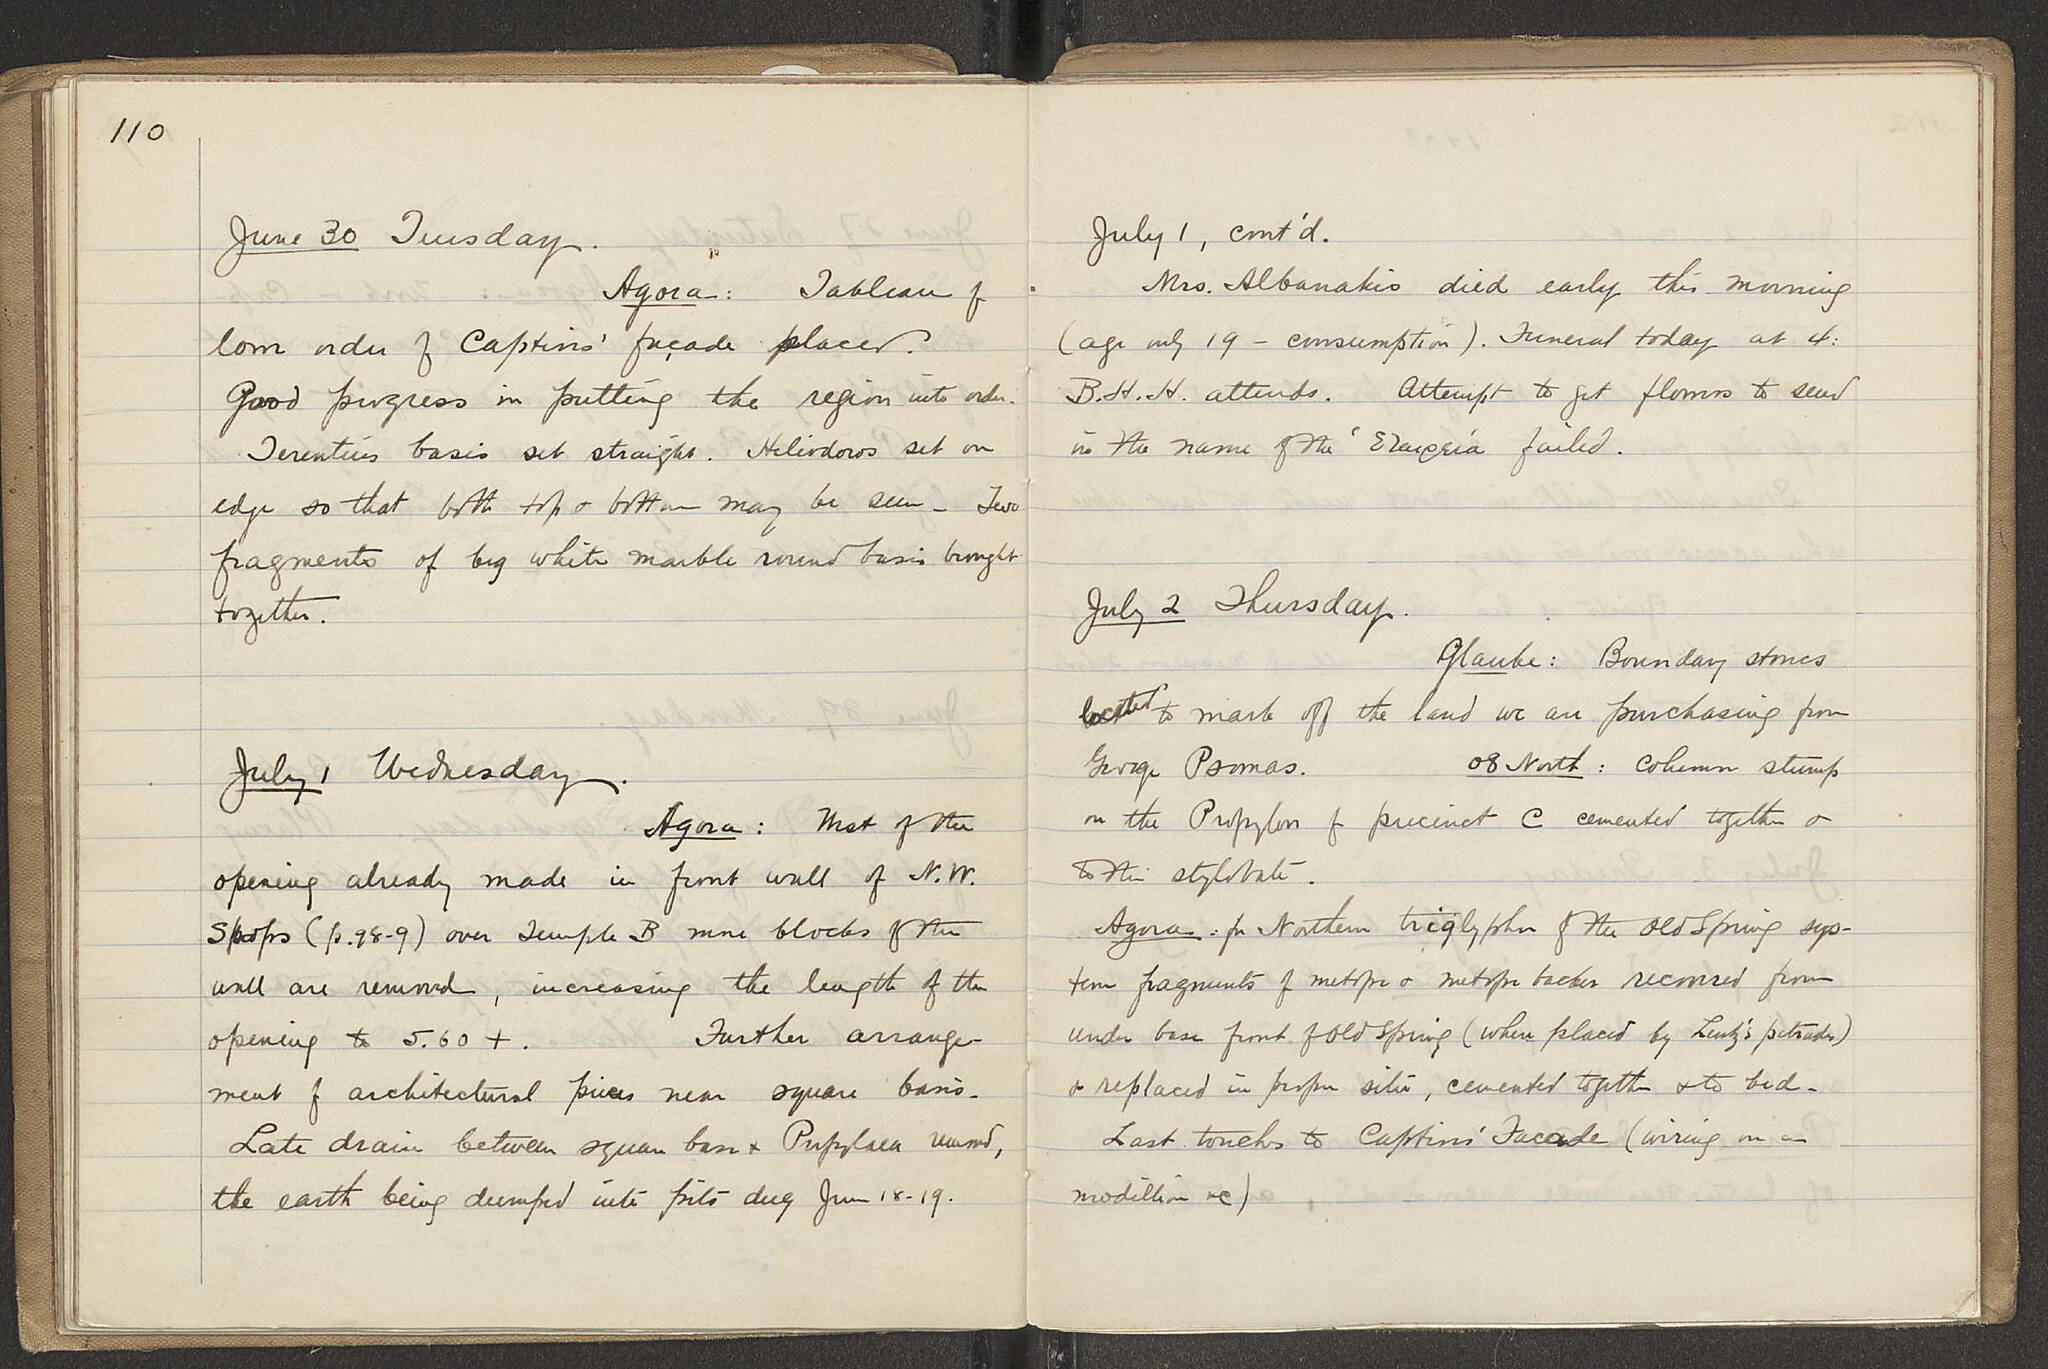 110
June 30 Tuesday.
Agora: Tableau of
lower order of Captives' façade placed.
Good progress in putting the region into order.
Terentius basis set straight. Heliodoros set on
edge so that both top & bottom may be seen. Two
fragments of big white marble round basis brought
together.
July 1 Wednesday.
Agora: West of the
opening already made in front wall of N.W.
Shops (p. 98-9) over Temple B more blocks of the
wall are removed, increasing the length of the
opening to 5.60 +. Further arrange-
ment of architectural pieces near square basis.
Late drain between square base & Propylaea removed,
the earth being dumped into pits dug June 18-19.
July 1, cont'd.
Mrs. Albanakis died early this morning
(age only 19 - consumption). Funeral today at 4:
B.H.H. attends. Attempt to get flowers to send
in the name of the failed.
July 2 Thursday.
Glauke: Boundary stones
located to mark off the land we are purchasing from
George Psomas. 08 North: column stump
on the Propylon of precinct C cemented together &
to the stylobate.
Agora: for Northern triglyphon of the Old Spring sys-
tem fragments of metope & metope backer recovered from
under base front of Old Spring (where placed by)
& replaced in proper situ, cemented together & to bed.
Last touches to Captives' Facade (wiring on a
modillion etc)